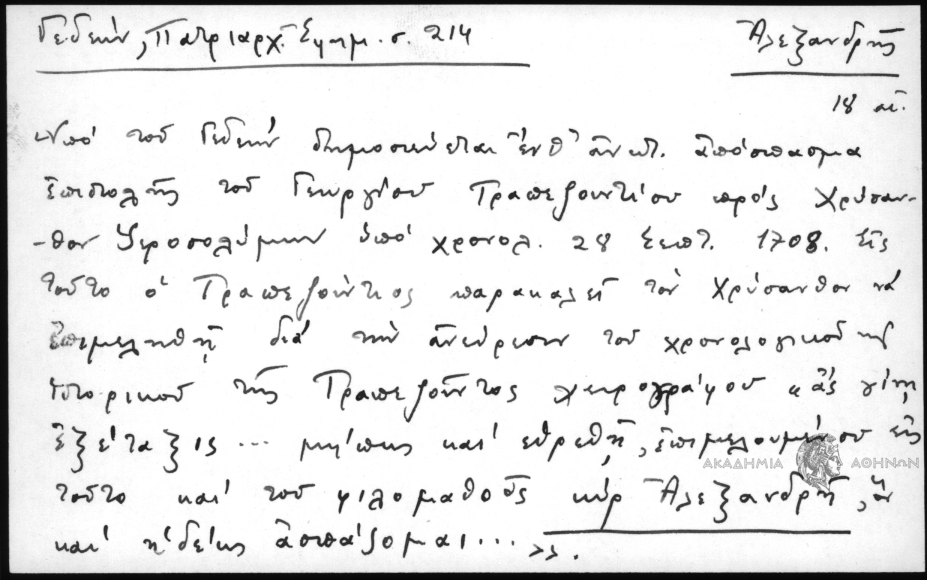 Γεδεών, Πατριαρχ. Εφημ. σ. 214
Ἀλεξανδρῆς
18 αἰ.
Ὑπό τοῦ Γεδεών δημοσιεύεται ἔνθ' ἀνωτ. ἀπόσπασμα
ἐπιστολῆς τοῦ Γεωργίου Τραπεζουντίου πρός Χρύσαν-
-θον Ἱεροσολύμων ὑπό χρονολ. 28 Σεπτ. 1708. Εἰς
τοῦτο ὁ Τραπεζούντιος παρακαλεῖ τὸν Χρύσανθον νά
ἐπιμεληθῇ διά τήν ἀνεύρεσιν τοῦ χρονολογικοῦ καί
ἱστορικοῦ τῆς Τραπεζοῦντος χειρογράφου «ἄς γίνῃ
ἐξέταξις ... μήπως καί εὑρεθῇ, ἐπιμελουμένου εἰς
τοῦτο καί τοῦ φιλομαθοῦς κύρ Ἀλεξανδρῆ, ὅν
καί ἡδέως ἀσπάζομαι... »».
ΑΚΑΔΗΜΙΑ ΑΘΗΝΩΝ